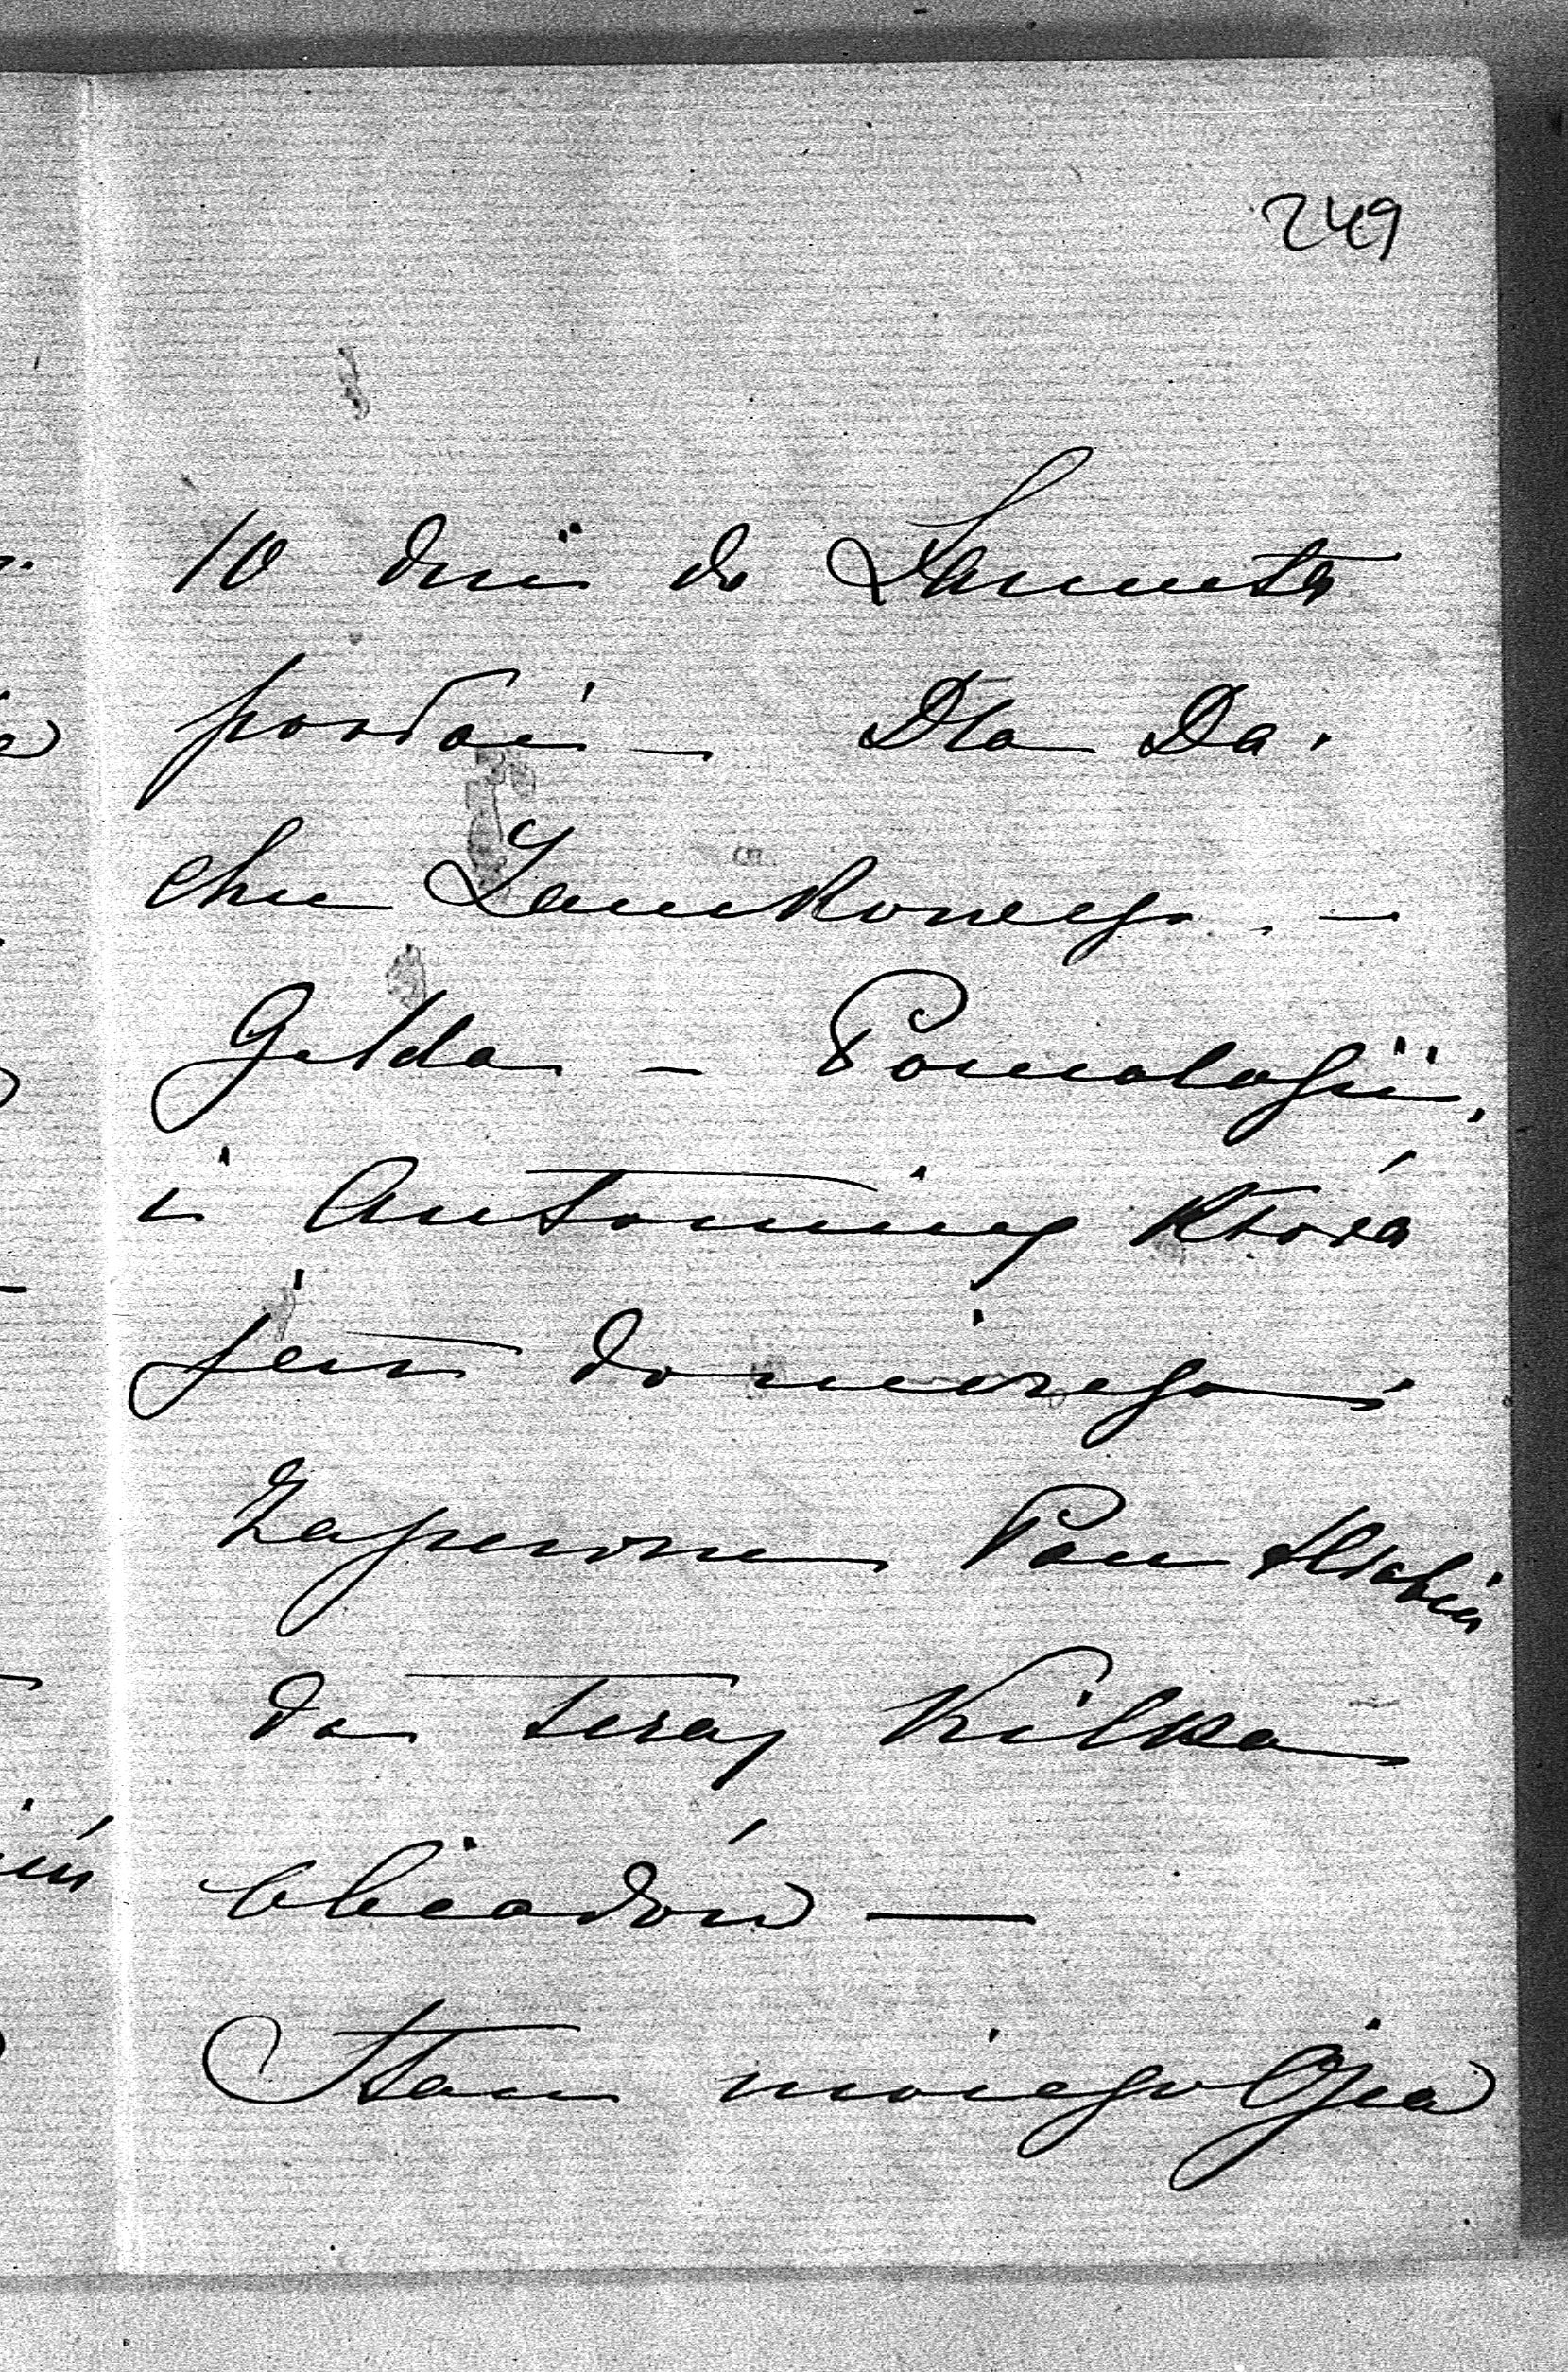 249
10 dni do Łańcuta
posłać – Dla Da.
chu Zamkowego. –
Gelda – Pomologii,
i Antoniny która
jest do niczego
Zapewne Pan Hrabia
da teraz kilka
obiadów —
Stan mojego Ojca